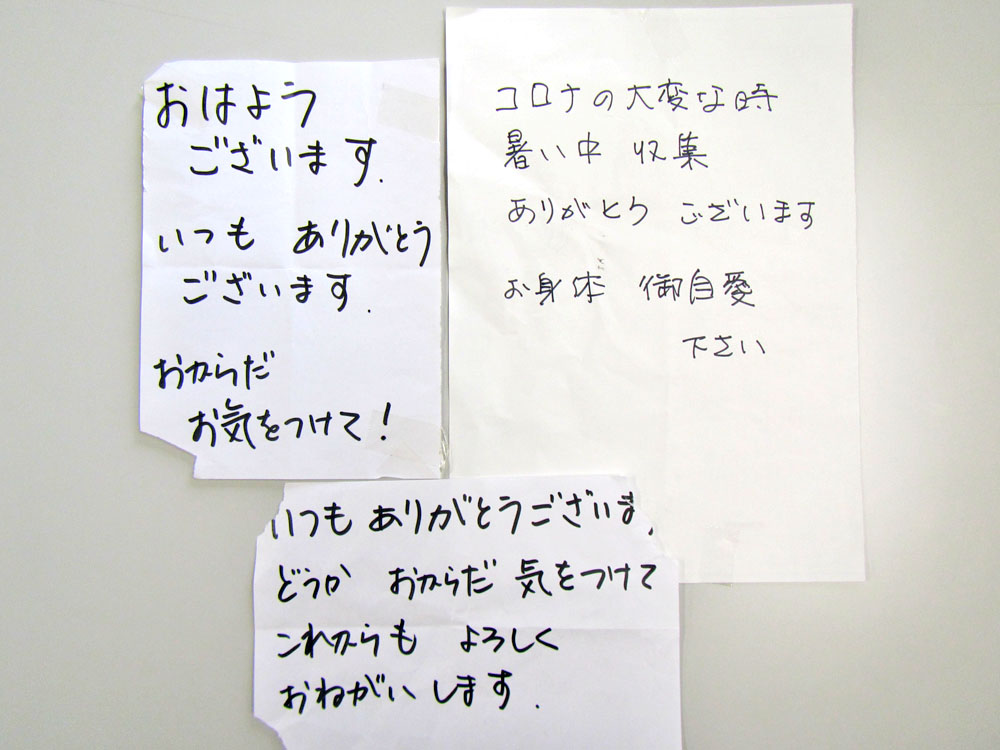 おはよう
ございます.
いつも ありがとう
ございます.
おからだ
お気をつけて!
コロナの大変な時
暑い中 収集
ありがとう ございます
お身体 御自愛
下さい
いつもありがとうございま
どうか おからだ 気をつけて
これからも よろしく
おねがいします.